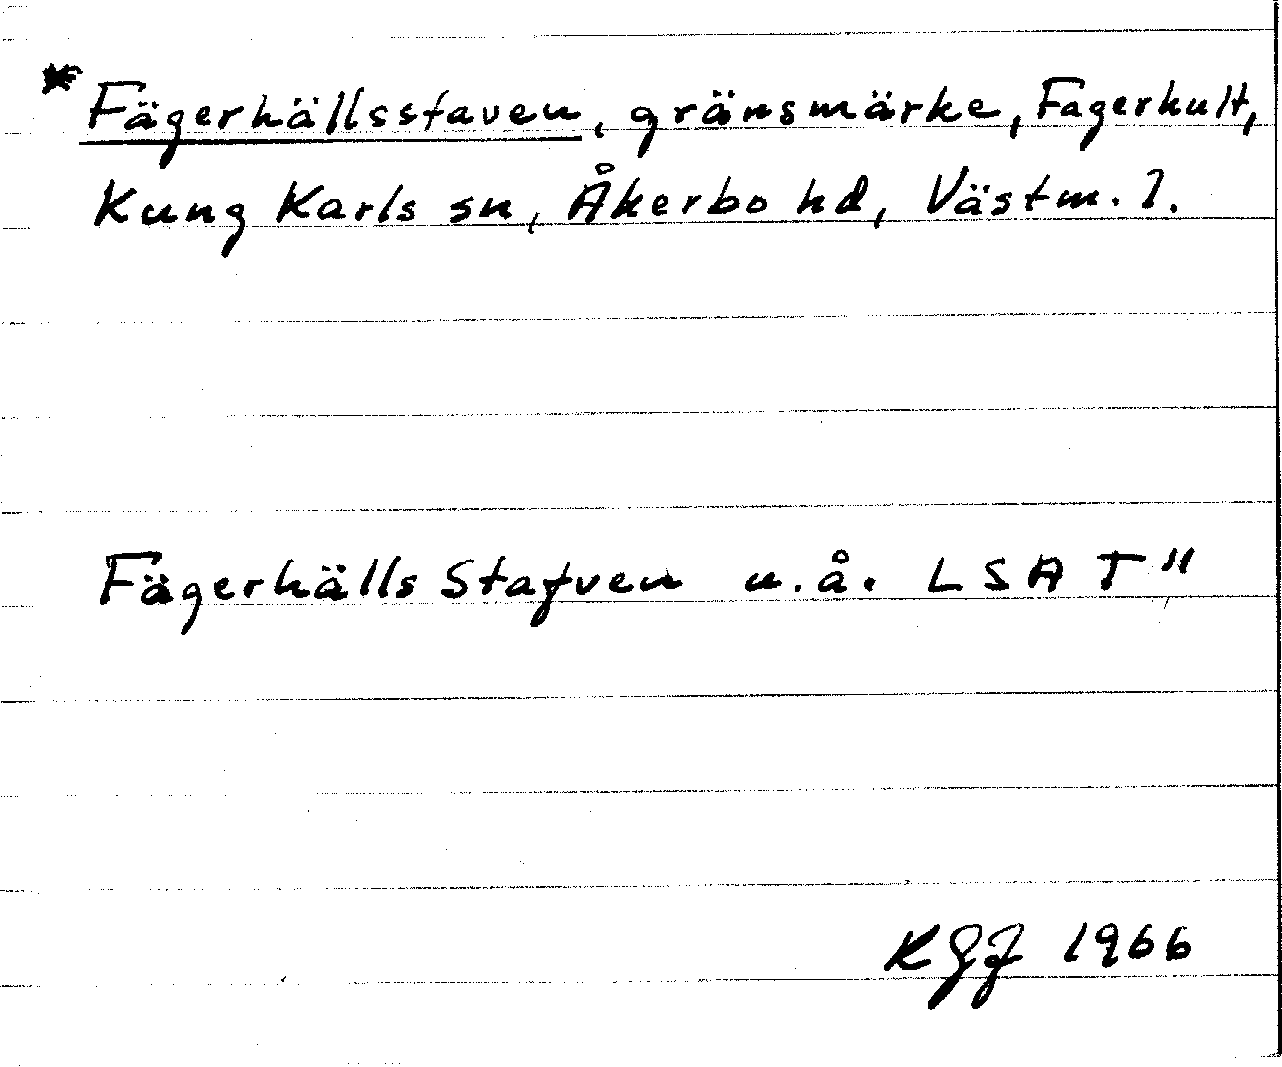 * Fägerhällsstaven, gränsmärke, Fagerhult,
Kung Karls sn, Åkerbo hd, Västm. l.
Fägerhälls Stafven u.å. LSA T"
KGJ 1966